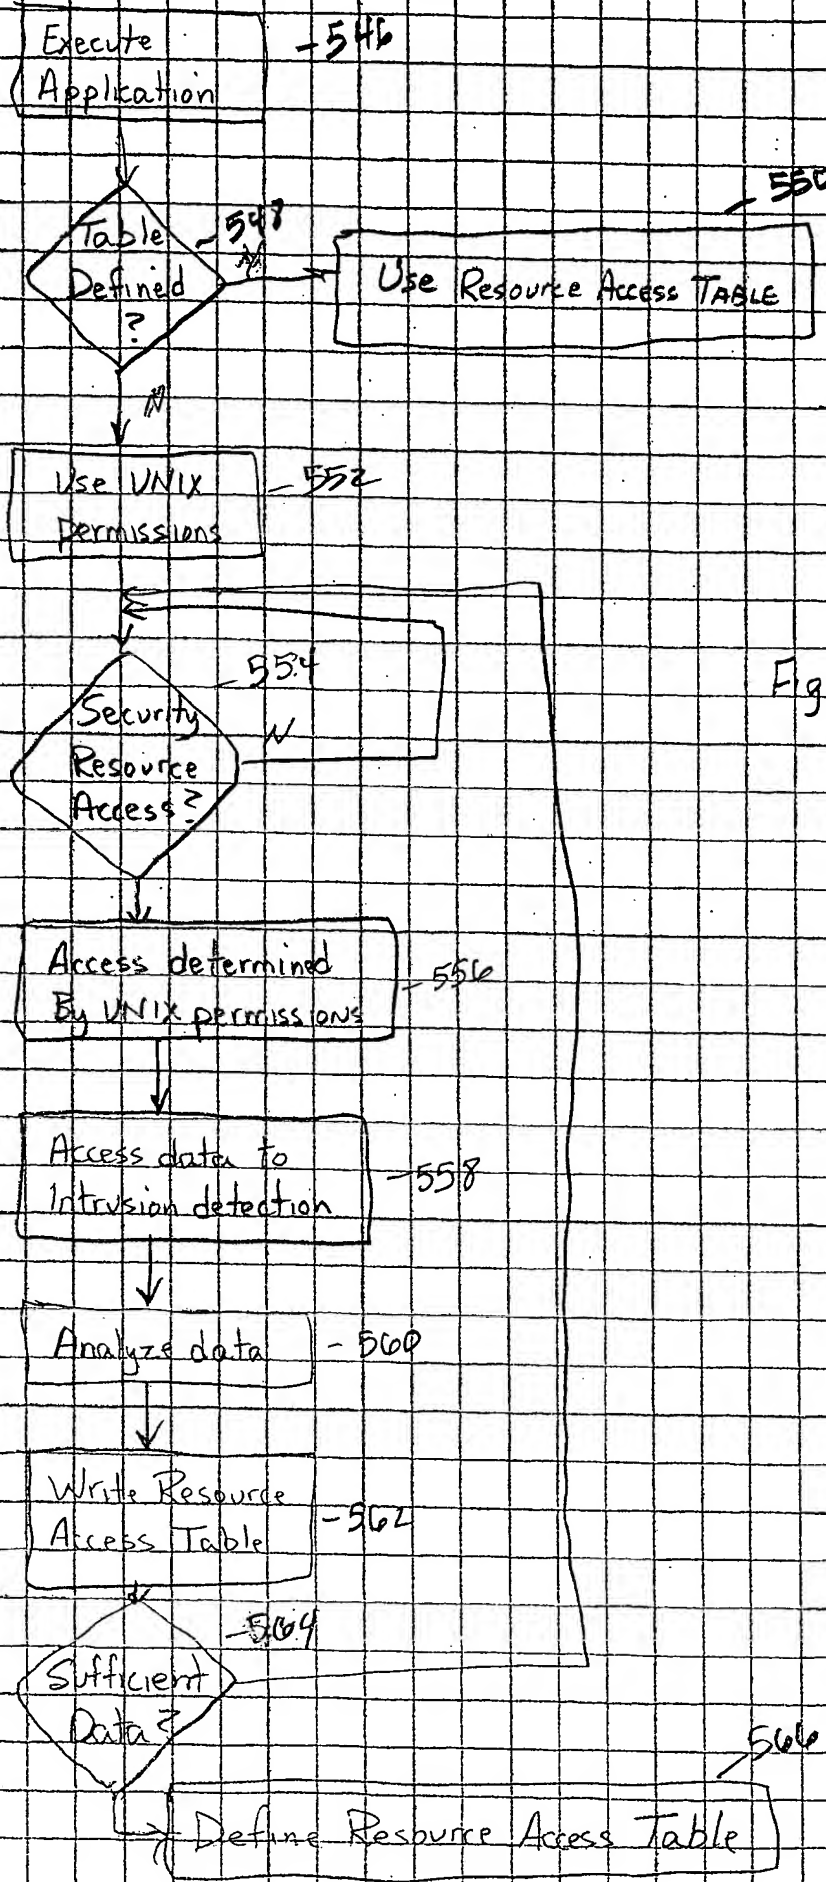 Execute
Application
-546
550
Table
Defined
?
-548
Use Resource Access TABLE
N
Use UNIX
permissions
-552
Security
Resource
Access?
-554
N
Fig
Access determined
By UNIX permissions
-556
Access data to
Intrusion detection
-558
Analyze data
-560
Write Resource
Access Table
-562
Sufficient
Data?
-564
566
Define Resource Access Table